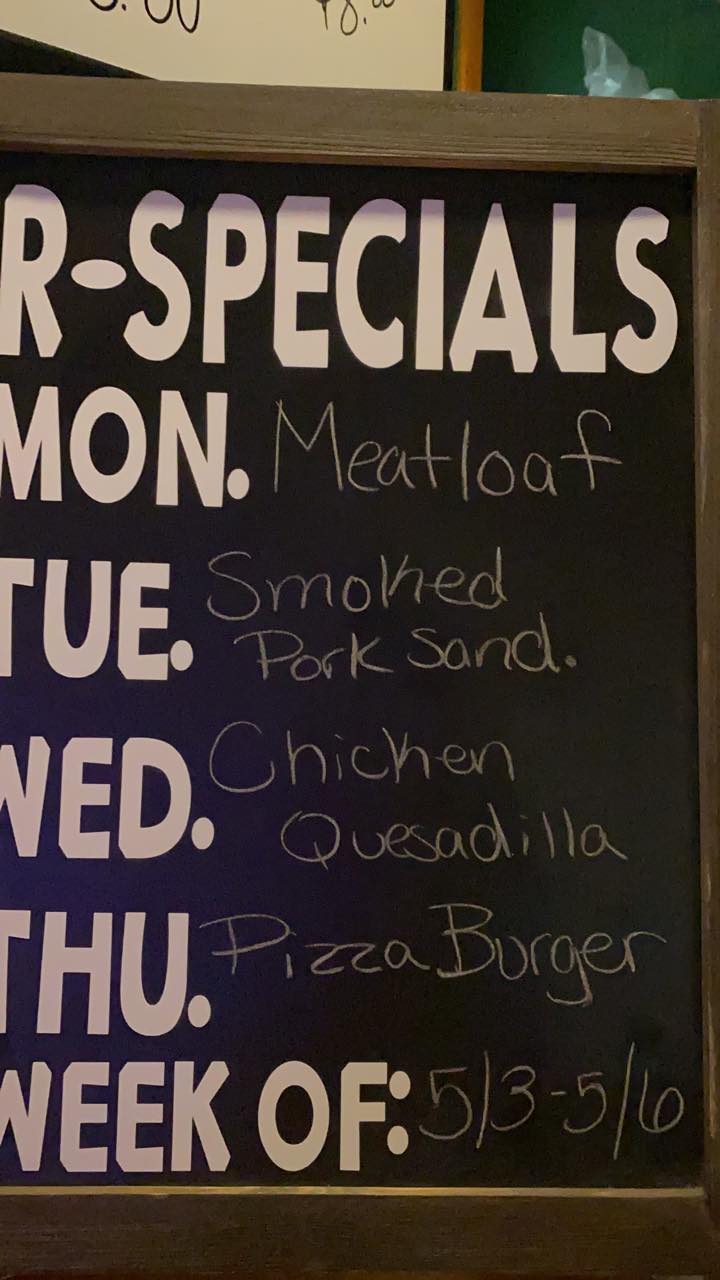 R-SPECIALS
MON. Meatloaf
TUE. Smoked
Pork Sand.
WED. Chicken
Quesadilla
THU. Pizza Burger
WEEK OF: 5/3-5/6